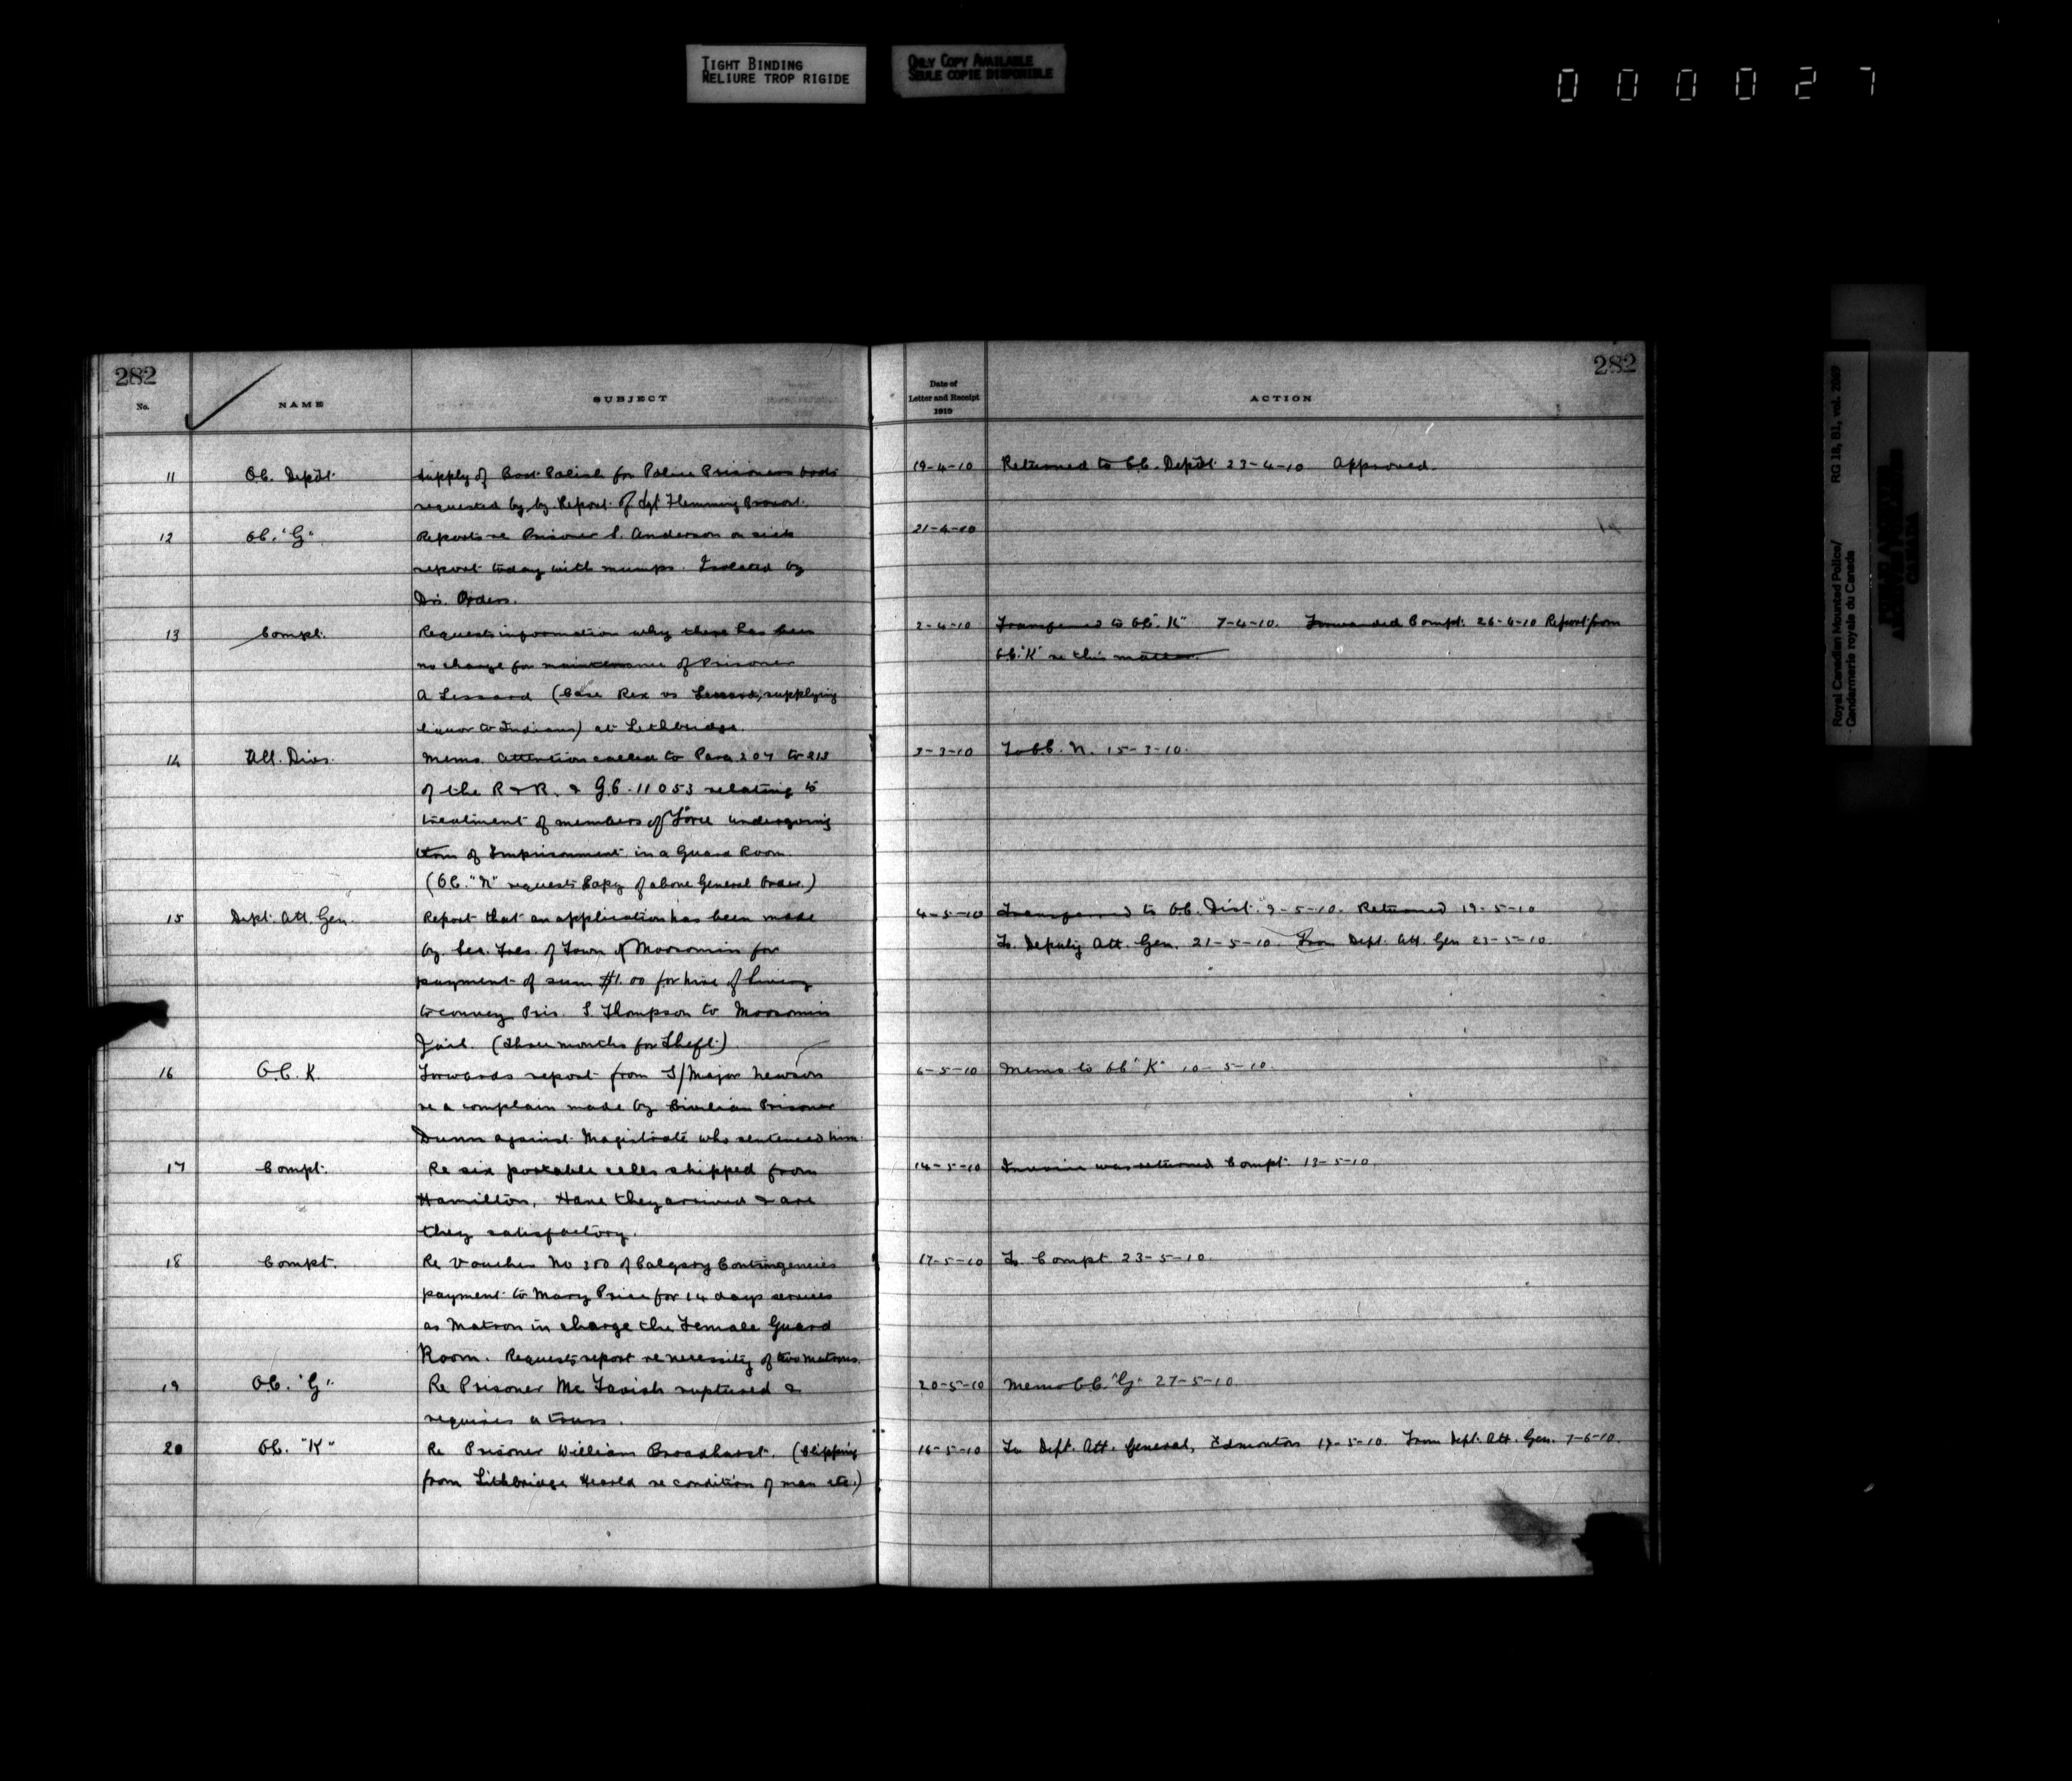 TIGHT BINDING
RELIURE TROP RIGIDE
ONLY COPY AVAILABLE
SEULE COPIE DISPONIBLE
000027
282
No.
NAME
SUBJECT
Date of
Letter and Receipt
1910
ACTION
282
11 O.C. Depôt Supply of Boot Polish for Police Prisoners boots 19-4-10 Returned to O.C. Depôt 23-4-10 Approved.
requested by by Report of Sgt Flemming Provost.
12 O.C. "G" Reports re Prisoner S. Anderson on sick 21-4-10
report today with mumps. Isolated by
Drs. Orders.
13 Compt. Requests information why there has been 2-4-10 Transferred to O.C. "K" 7-4-10. Forwarded Compt. 26-4-10 Report from
no charge for maintenance of Prisoner O.C. "K" re this matter.
A Lessard (Case Rex vs Lessard, supplying
liquor to Indians) at Lethbridge.
14 All. Divs. Memo. Attention called to Para 207 to 218 3-3-10 To O.C. N. 15-3-10.
of the R & R. & G.O. 11053 relating to
treatment of members of Force undergoing
term of Imprisonment in a Guard Room.
(O.C. "N" requests Copy of above General Order.)
15 Dept. Att. Gen. Report that an application has been made 4-5-10 Transferred to O.C. Dist. 9-5-10. Returned 19-5-10
by Sec. Treas. of Town of Moosomin for To Deputy Att. Gen. 21-5-10. From Dept. Att. Gen 23-5-10.
payment of sum $1.00 for hire of livery
to convey Pris. S. Thompson to Moosomin
Jail. (Three months for Theft)
16 O.C. K. Forwards report from S/Major Newson 6-5-10 Memo to O.C. "K" 10-5-10.
re a complain made by Civilian Prisoner
Dunn against Magistrate who sentenced him.
17 Compt. Re six portable cells shipped from 14-5-10 Invoice was returned Compt. 13-5-10.
Hamilton. Have they arrived & are
they satisfactory.
18 Compt. Re Voucher No 350 of Calgary Contingencies 17-5-10 To Compt 23-5-10.
payment to Mary Price for 14 days services
as Matron in charge the Female Guard
Room. Requests report re necessity of two matrons.
19 O.C. "G". Re Prisoner McTavish ruptured & 20-5-10 Memo O.C. "G" 27-5-10.
requires a truss.
20 O.C. "K" Re Prisoner William Broadhurst. (Clipping 16-5-10 To Dept. Att. General, Edmonton 19-5-10. From Dept. Att. Gen. 7-6-10.
from Lethbridge Herald re condition of man etc.)
Royal Canadian Mounted Police/ RG 18, B1, vol. 2069
Gendarmerie royale du Canada
PUBLIC ARCHIVES
ARCHIVES PUBLIQUES
CANADA